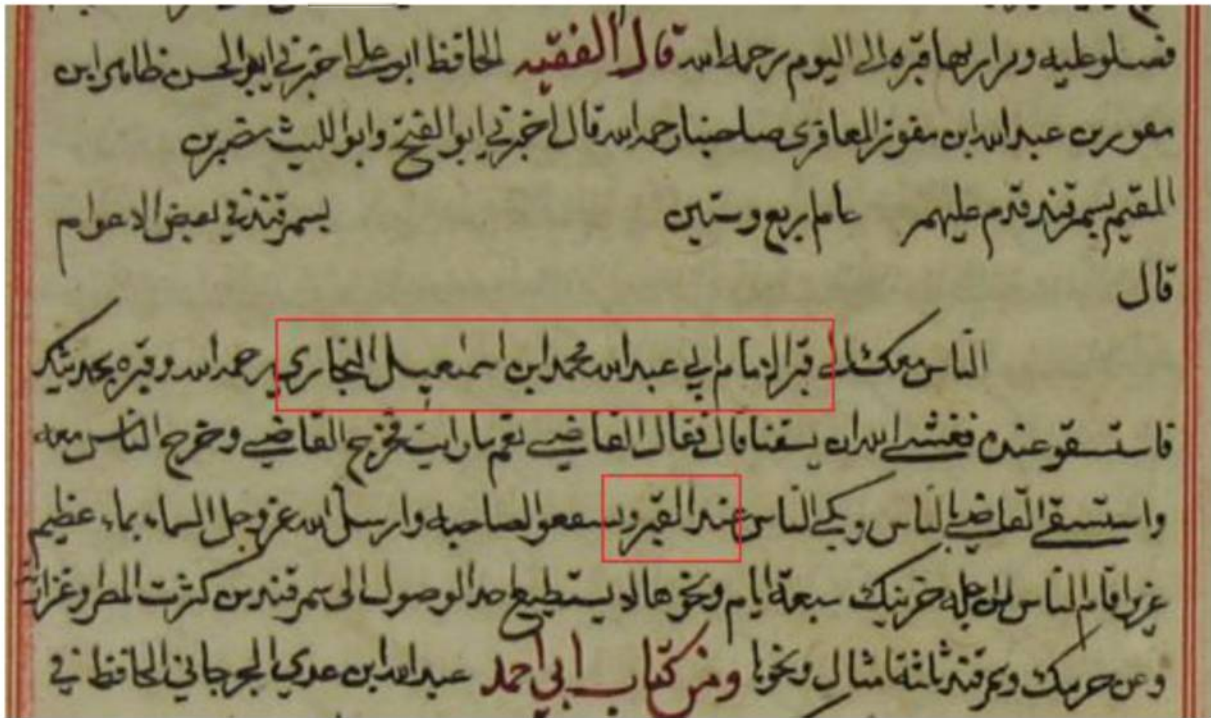 فصلو عليه ومزار بها قبره الى اليوم رحمه الله قال الفقيه الحافظ ابو على اخبرني ابو الحسن طاهر ابن
مفوز بن عبد الله ابن مفوز المعافرى صاحبنا رحمه الله قال اخبرني ابو الفتح وابو الليث نصر بن
المقيم بسمرقند قدم عليهم عام اربع وستين بسمرقند في بعض الاعوام
قال
الناس معك الى قبر الامام ابي عبد الله محمد ابن اسمعيل البخاري رحمه الله وقبره بخرتنك
فاستسقو عنده فعسى الله ان يسقنا قال فقال القاضي نعم ما رايت فخرج القاضي وخرج الناس معه
واستسقى القاضي بالناس وبكى الناس عند القبر وتشفعوا لصاحبه وارسل الله عز وجل السماء بماء عظيم
اقام الناس من اجله خرتنك سبعة ايام ونحوها لا يستطيع احد الوصول الى سمرقند من كثرت المطر
وعن خرتنك وسمرقند ثلثة اميال ونحوها ومن كتاب ابي احمد عبد الله ابن عدي الجرجاني الحافظ في